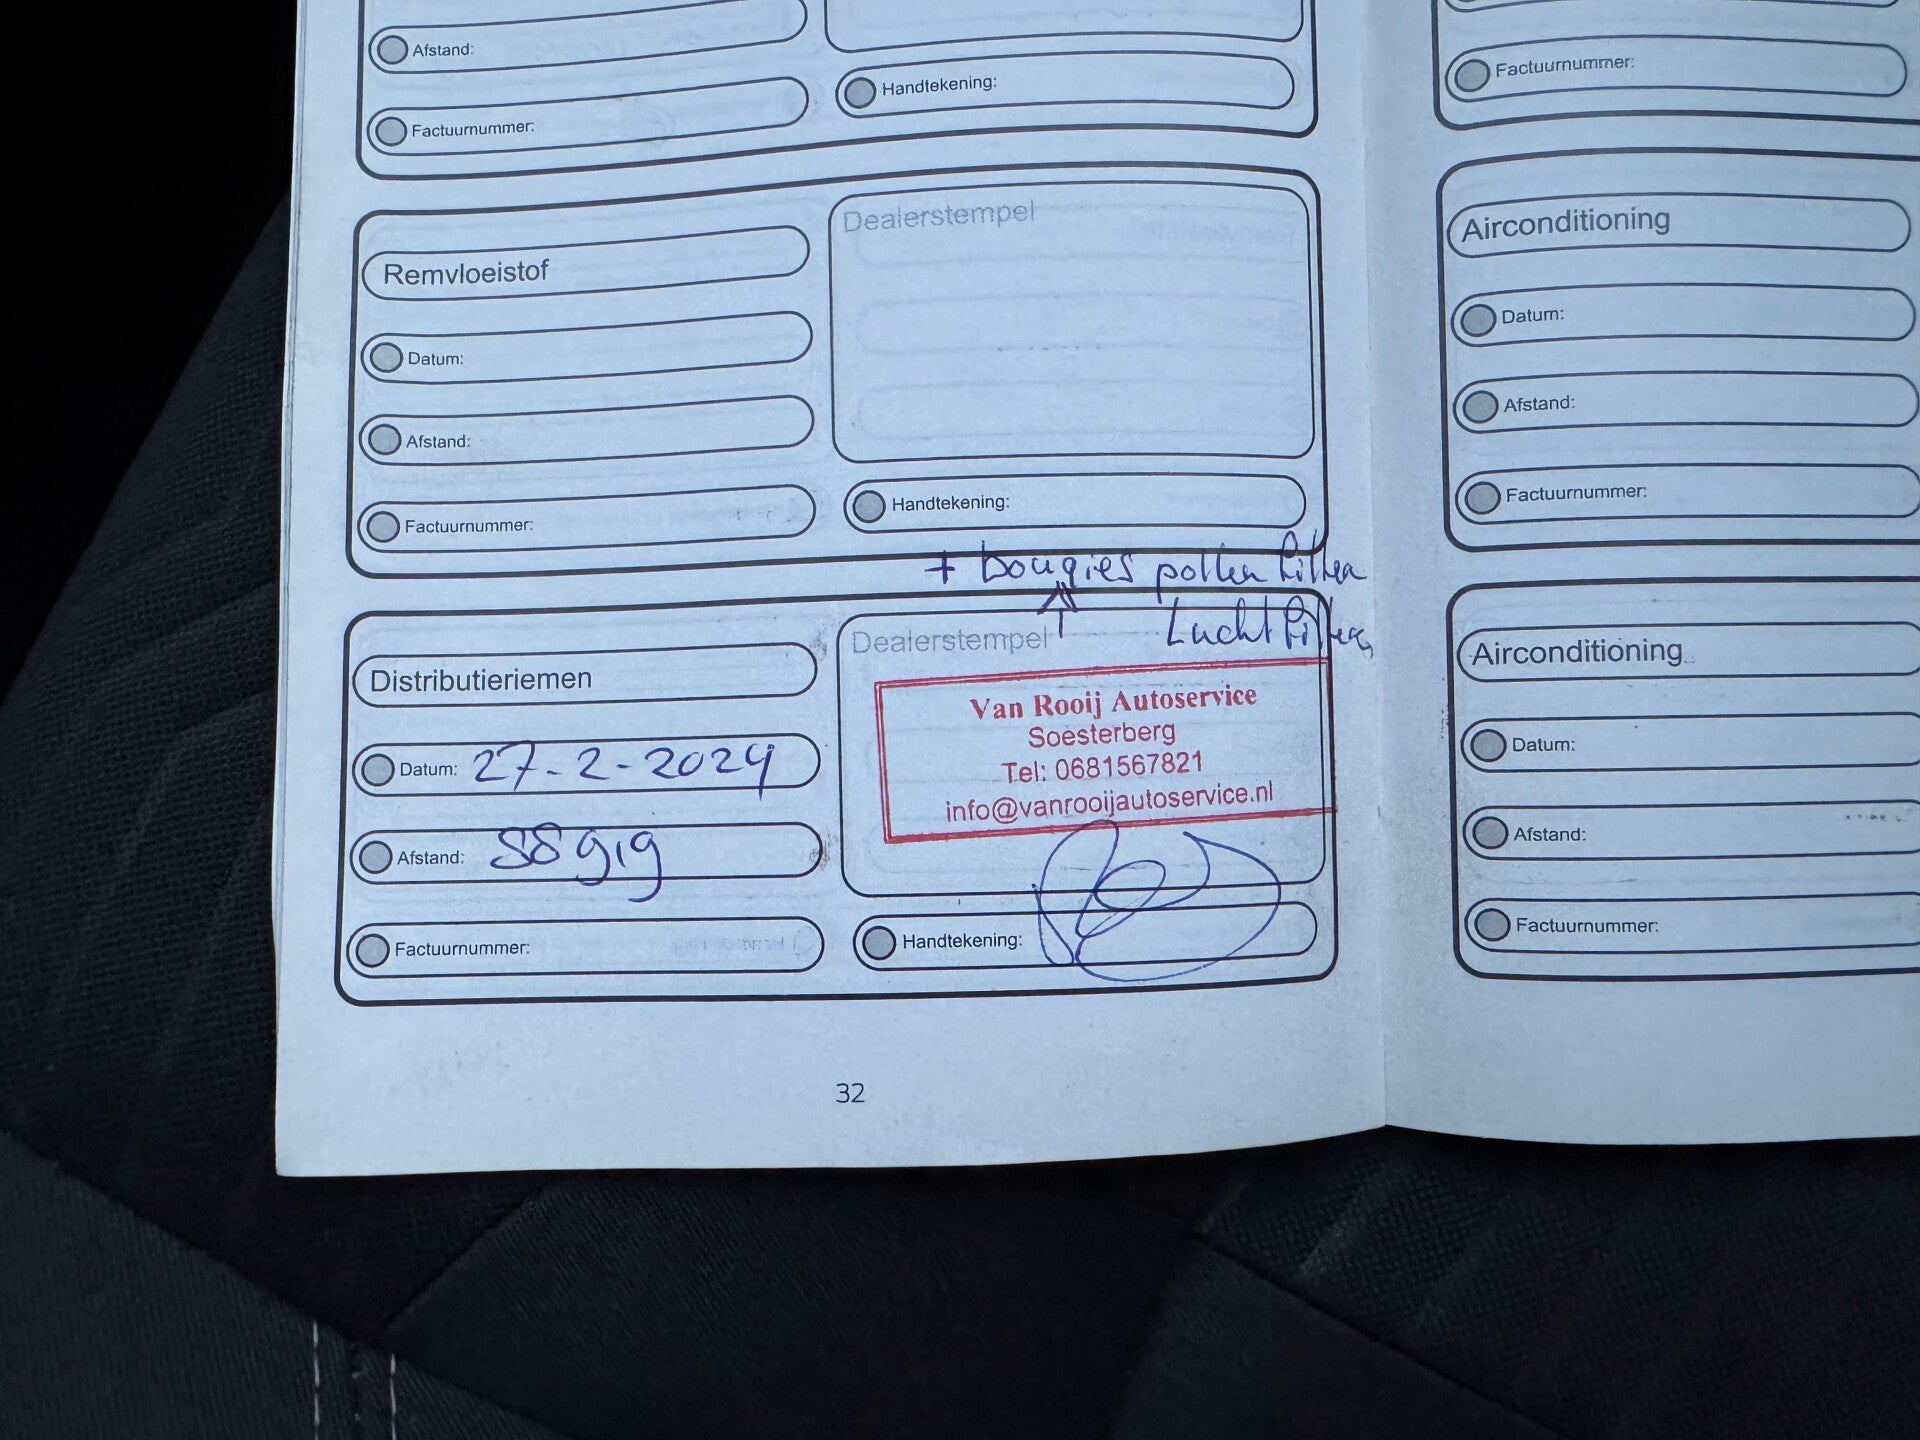 Afstand:
Factuurnummer:
Handtekening:
Remvloeistof
Datum:
Afstand:
Factuurnummer:
Dealerstempel
Handtekening:
+ bougies pollen filter
Lucht filter
Distributieriemen
Datum: 27-2-2024
Afstand: 58919
Factuurnummer:
Dealerstempel
Van Rooij Autoservice
Soesterberg
Tel: 0681567821
info@vanrooijautoservice.nl
Handtekening:
32
Factuurnummer:
Airconditioning
Datum:
Afstand:
Factuurnummer:
Airconditioning
Datum:
Afstand:
Factuurnummer: